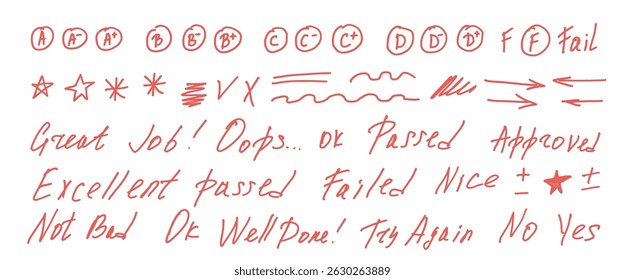 A A- A+ B B- B+ C C- C+ D D- D+ F F Fail
Great Job! Oops... ok Passed Approved
Excellent passed Failed Nice ± ±
Not Bad Ok Well Done! Try Again No Yes
shutterstock.com · 2630263889